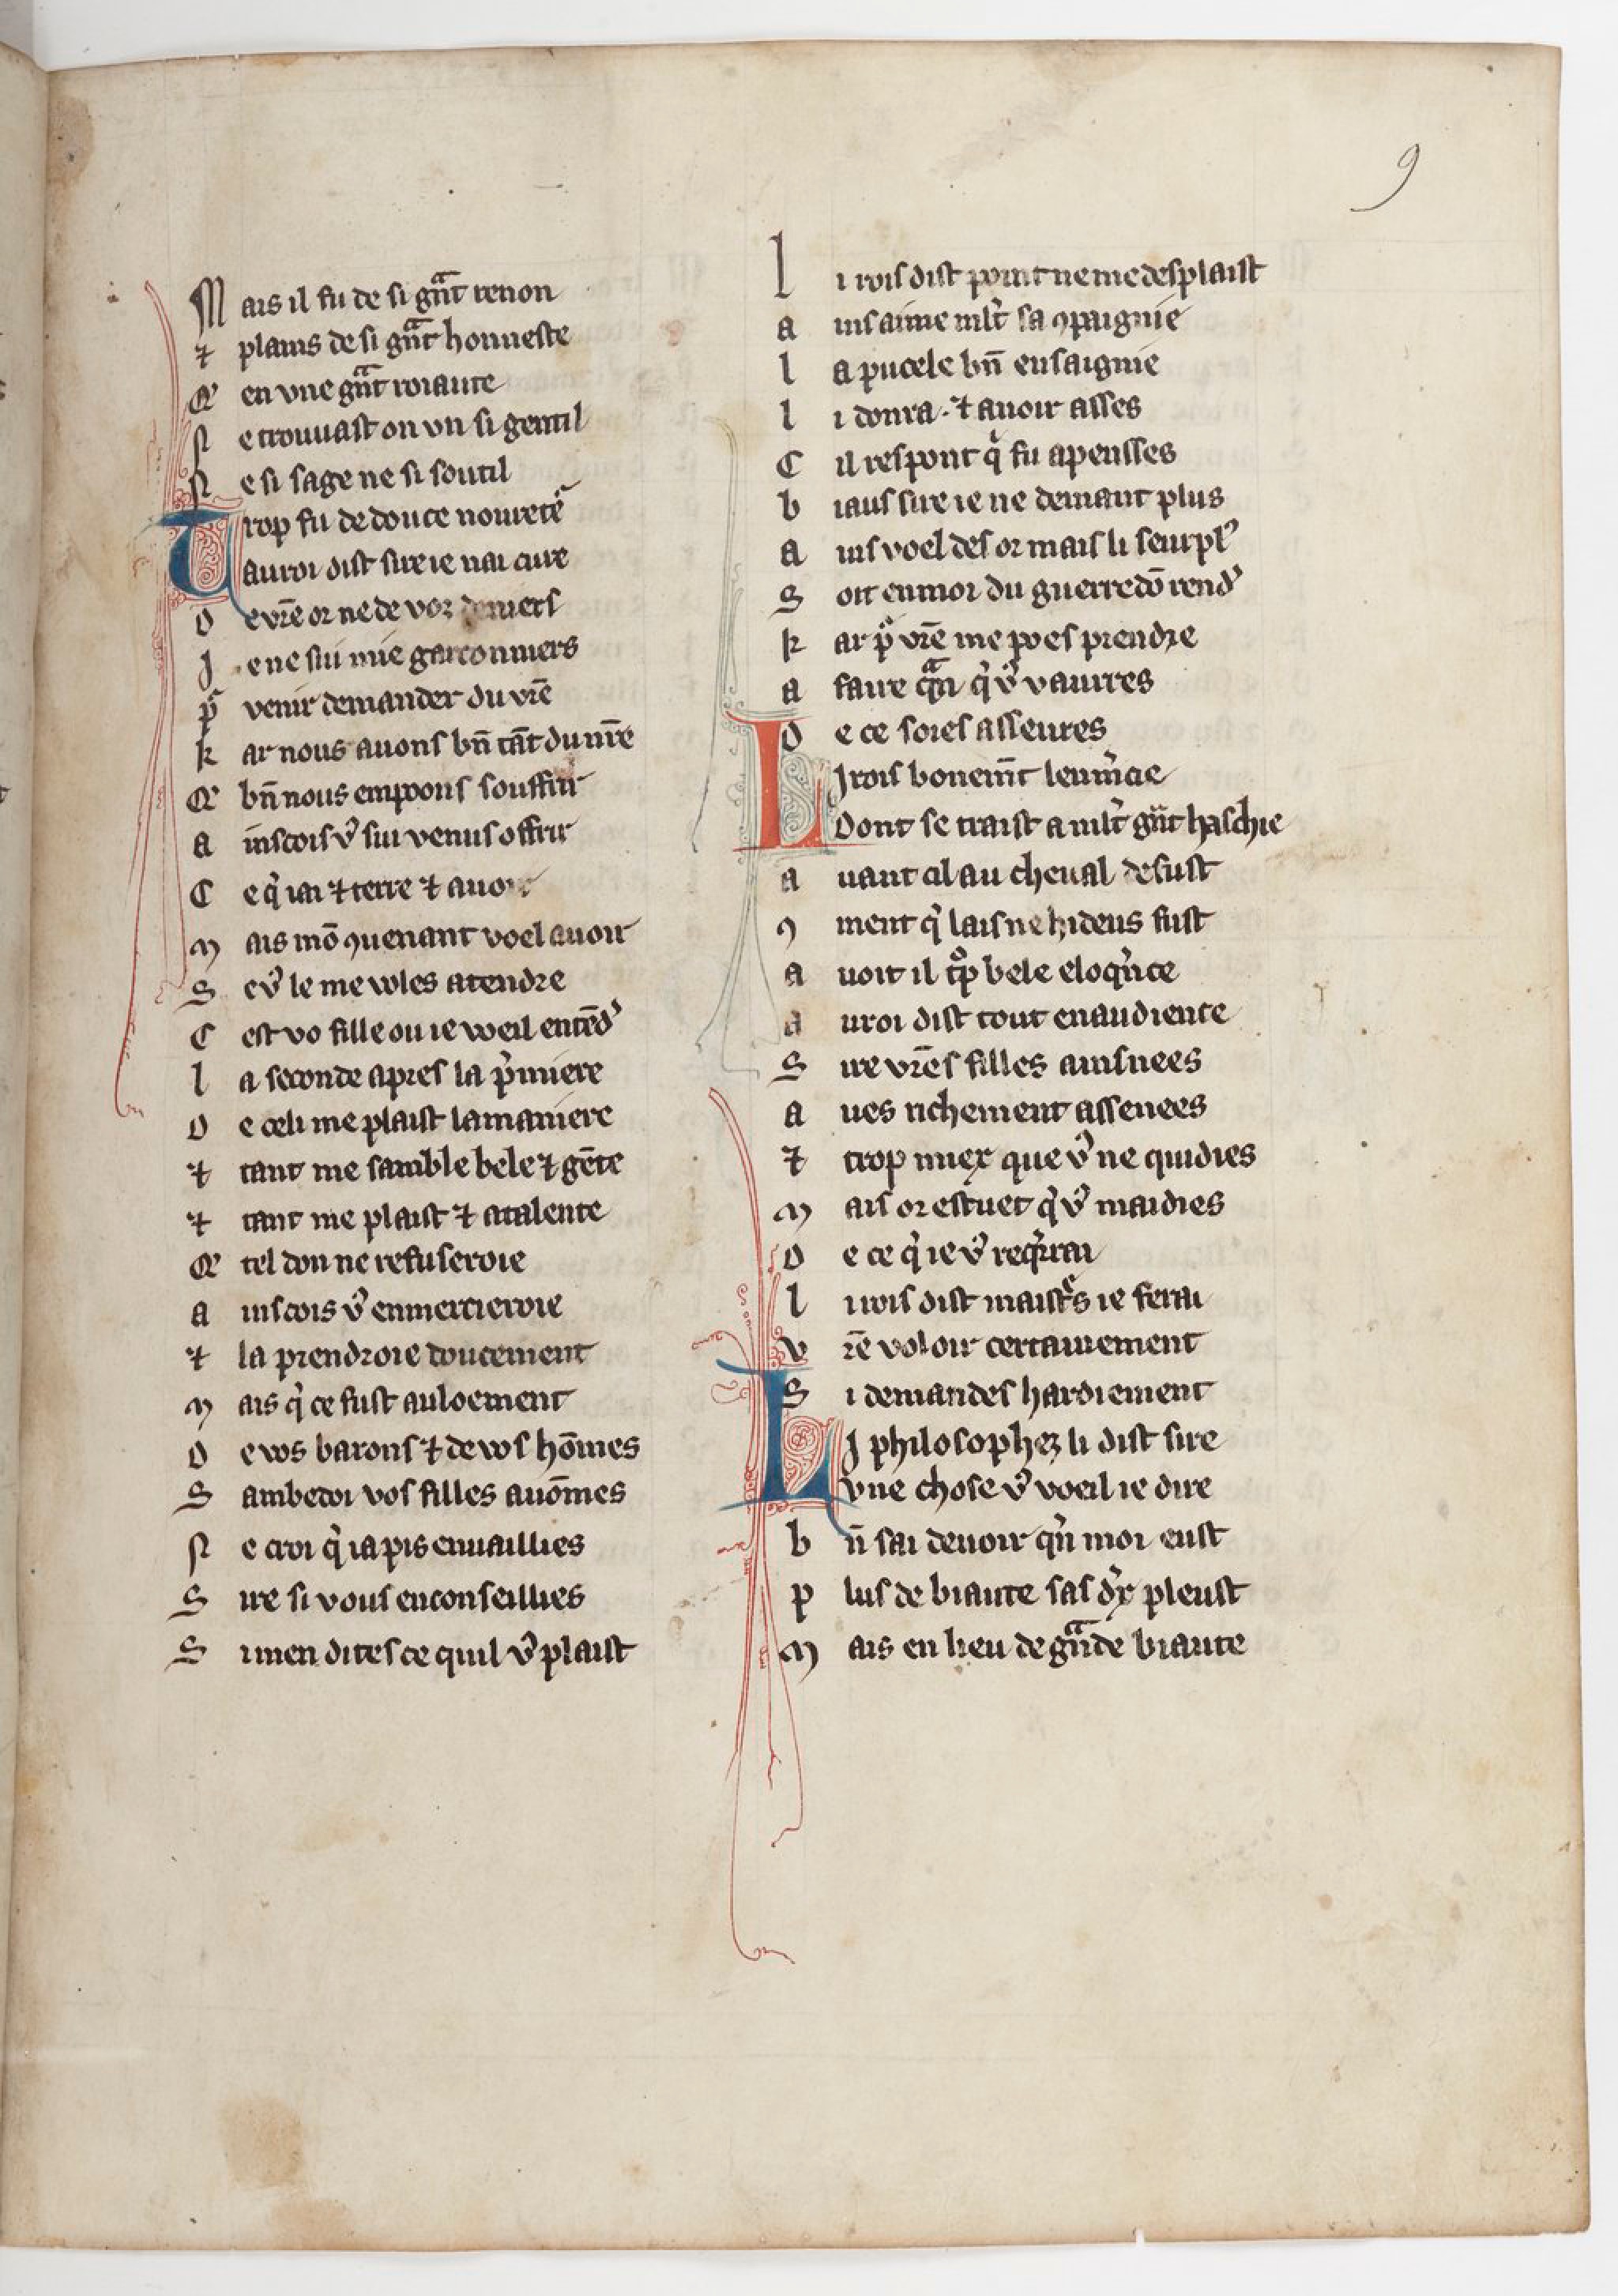 9
Mais il fu de si gᷓnt renon
⁊ plains de si gᷓnt honneste
Q' en vne gᷓnt roiaute
Ne trouuast on vn si gentil
Ne si sage ne si soutil
Trop fu de douce nouretͥ̃e
Au roi dist sire ie nai cure
De vr̃e or ne de voz deniers
Je ne sui mie garconniers
pͬ venir demander du vr̃e
kar nous auons bñ tãt du nr̃e
Q' bñ nous em poons souffrir
Ainscois vꝰ sui venus offrir
Ce q̾ iai ⁊ terre ⁊ auoir
Mais mõ ꝯuenant voel auoir
Se vꝰ le me voles atendre
Cest vo fille ou ie weil entẽdʾ
La seconde apres la p̾miere
De celi me plaist la maniere
⁊ tant me samble bele ⁊ gẽte
⁊ tant me plaist ⁊ atalente
Q' tel don ne refuseroie
Ainscois vꝰ en mercieroie
⁊ la prendroie doucement
Mais q̾ ce fust au loement
De vos barons ⁊ de vos hõmes
Sambedoi vos filles auõmes
Ne croi q̾ ia pis en vaillies
Sire si vous en conseillies
Si men dites ce quil vꝰ plaist
Li rois dist point ne me desplaist
Ains aime ml̃t sa ꝯpaignie
La pucele bñ ensaignie
Li donra · ⁊ auoir asses
Cil respont qͥ fu apensses
biaus sire ie ne demant plus
Ains voel des or mais li seurplꝰ
Soit en moi du guerredõ rendʾ
kar pͬ vr̃e me poes prendre
A faire qᷓn q̾ vꝰ vaurres
De ce soies asseures
LJ rois bonemt̃ len m̾cie
Dont se traist a ml̃t gᷓnt haschie
Auant cil au cheual de fust
ꝯment q̾ lais ne hideus fust
Auoit il tͦp bele eloq̾nce
Au roi dist tout en audience
Sire vr̃es filles ainsnees
Aues richement assenees
⁊ trop miex que vꝰ ne quidies
Mais or estuet q̾ vꝰ maidies
De ce q̾ ie vꝰ req̾rrai
Li rois dist maistͬs ie ferai
Vr̃e voloir certainement
Si demandes hardiement
LJ philosophez li dist sire
Vne chose vꝰ voeil ie dire
bñ sai de voir q̾n moi eust
Plus de biaute sas dʾx pleust
Mais en lieu de gᷓnde biaute